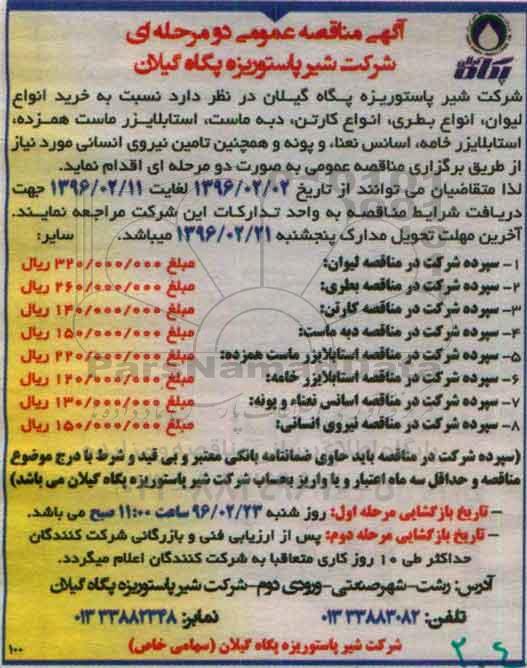 آگهی مناقصه عمومی دو مرحله ای
شرکت شیر پاستوریزه پگاه گیلان
پگاه
شرکت شیر پاستوریزه پگاه گیلان در نظر دارد نسبت به خرید انواع
لیوان، انواع بطری، انواع کارتن، دبه ماست، استابلایزر ماست همزده،
استابلایزر خامه، اسانس نعنا، و پونه و همچنین تامین نیروی انسانی مورد نیاز
از طریق برگزاری مناقصه عمومی به صورت دو مرحله ای اقدام نماید.
لذا متقاضیان می توانند از تاریخ ۱۳۹۶/۰۲/۰۲ لغایت ۱۳۹۶/۰۲/۱۱ جهت
دریافت شرایط مناقصه به واحد تدارکات این شرکت مراجعه نمایند.
آخرین مهلت تحویل مدارک پنجشنبه ۱۳۹۶/۰۲/۲۱ میباشد. سایر:
۱- سپرده شرکت در مناقصه لیوان: مبلغ ۳۲۰/۰۰۰/۰۰۰ ریال
۲- سپرده شرکت در مناقصه بطری: مبلغ ۲۶۰/۰۰۰/۰۰۰ ریال
۳- سپرده شرکت در مناقصه کارتن: مبلغ ۱۴۰/۰۰۰/۰۰۰ ریال
۴- سپرده شرکت در مناقصه دبه ماست: مبلغ ۱۵۰/۰۰۰/۰۰۰ ریال
۵- سپرده شرکت در مناقصه استابلایزر ماست همزده: مبلغ ۲۲۰/۰۰۰/۰۰۰ ریال
۶- سپرده شرکت در مناقصه استابلایزر خامه: مبلغ ۱۲۰/۰۰۰/۰۰۰ ریال
۷- سپرده شرکت در مناقصه اسانس نعناء و پونه: مبلغ ۱۳۰/۰۰۰/۰۰۰ ریال
۸- سپرده شرکت در مناقصه نیروی انسانی: مبلغ ۱۵۰/۰۰۰/۰۰۰ ریال
(سپرده شرکت در مناقصه باید حاوی ضمانتنامه بانکی معتبر و بی قید و شرط با درج موضوع
مناقصه و حداقل سه ماه اعتبار و یا واریز بحساب شرکت شیر پاستوریزه پگاه گیلان می باشد)
- تاریخ بازگشایی مرحله اول: روز شنبه ۹۶/۰۲/۲۳ ساعت ۱۱:۰۰ صبح می باشد.
- تاریخ بازگشایی مرحله دوم: پس از ارزیابی فنی و بازرگانی شرکت کنندگان
حداکثر طی ۱۰ روز کاری متعاقبا به شرکت کنندگان اعلام میگردد.
آدرس: رشت-شهرصنعتی-ورودی دوم-شرکت شیر پاستوریزه پگاه گیلان
تلفن: ۰۱۳۳۳۸۸۳۰۸۲ نمابر: ۰۱۳۳۳۸۸۲۳۴۸
شرکت شیر پاستوریزه پگاه گیلان (سهامی خاص)
۱۰۰